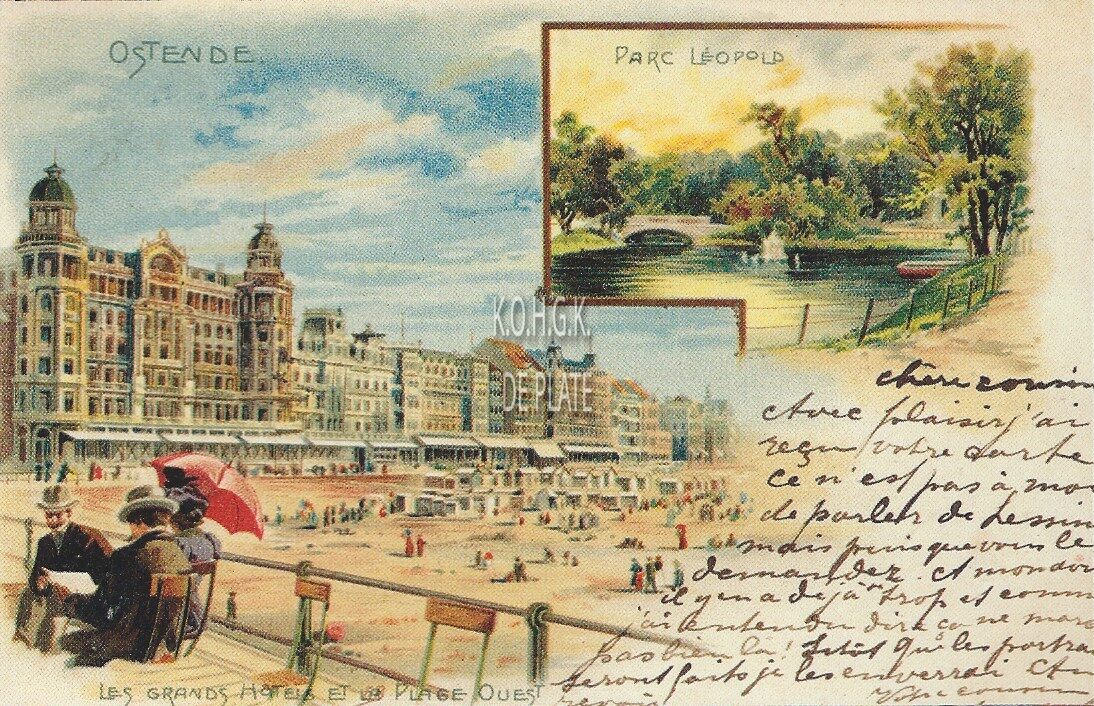 OSTENDE.
PARC LÉOPOLD
K.O.H.G.K.
DE PLATE
chère cousin
Avec plaisir j'ai
reçu votre carte
ce n'est pas à mo
de parler de
mais puisque vous le
demandez. Et mon
il y en a déjà trop et comm
j'ai entendu dire ça ne marc
pas bien là! sitôt que les portrai
seront faits je les enverrai
revoir Votre cousin
LES GRANDS HÔTELS ET LA PLAGE OUEST